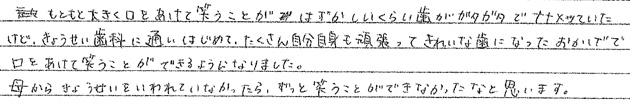 もともと大きく口をあけて笑うことがはずかしいくらい歯がガタガタでナナメッていた
けど、きょうせい歯科に通いはじめて、たくさん自分自身も頑張ってきれいな歯になったおかげで
口をあけて笑うことができるようになりました。
母からきょうせいをいわれていなかったら、ずっと笑うことができなかったなと思います。